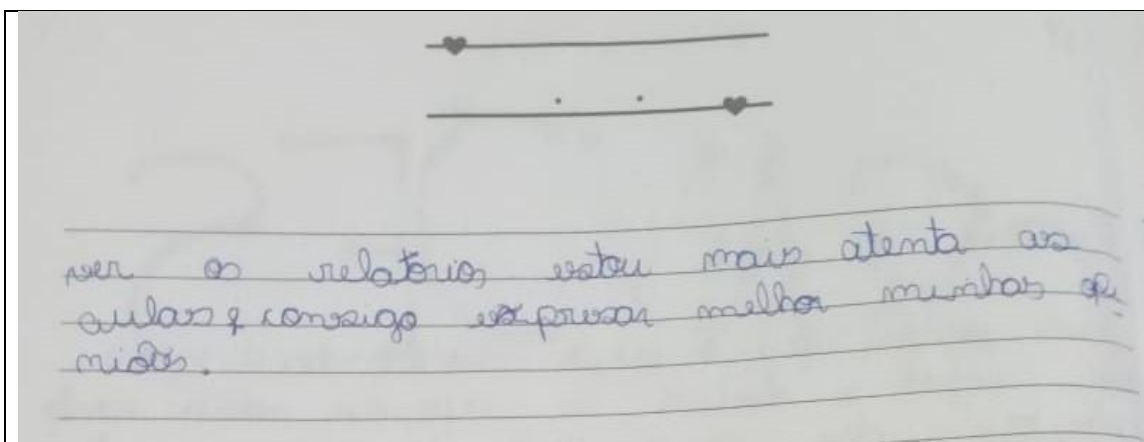 ver os relatórios estou mais atenta as
aulas e consigo expresar melhor minhas opi-
niões.